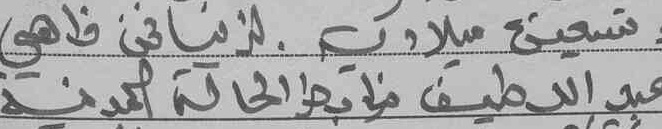 و تسعين ميلادية . لزناتي فاهي
عبد اللطيف ضابط الحالة المدنية